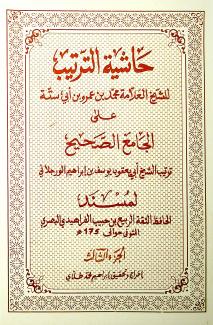 حاشية الترتيب
للشيخ العلامة محمد بن عمرو بن أبي ستة
على
الجامع الصحيح
ترتيب الشيخ أبي يعقوب يوسف بن إبراهيم الورجلاني
لمسند
الحافظ الثقة الربيع بن حبيب الفراهيدي البصري
المتوفى حوالي 175 هـ
الجزء الثالث
إخراج وتحقيق إبراهيم محمد طلاي